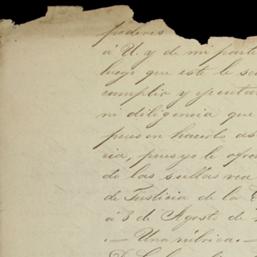 poderes
á U. y de mi parte
luego que este le se
cumplir y ejecutar
ni diligencia que
pues en hacerlo as
cia, pues yo le ofre
do las suellas vea
de Justicia de la
á 3 de Agosto de
.— Una rúbrica.—